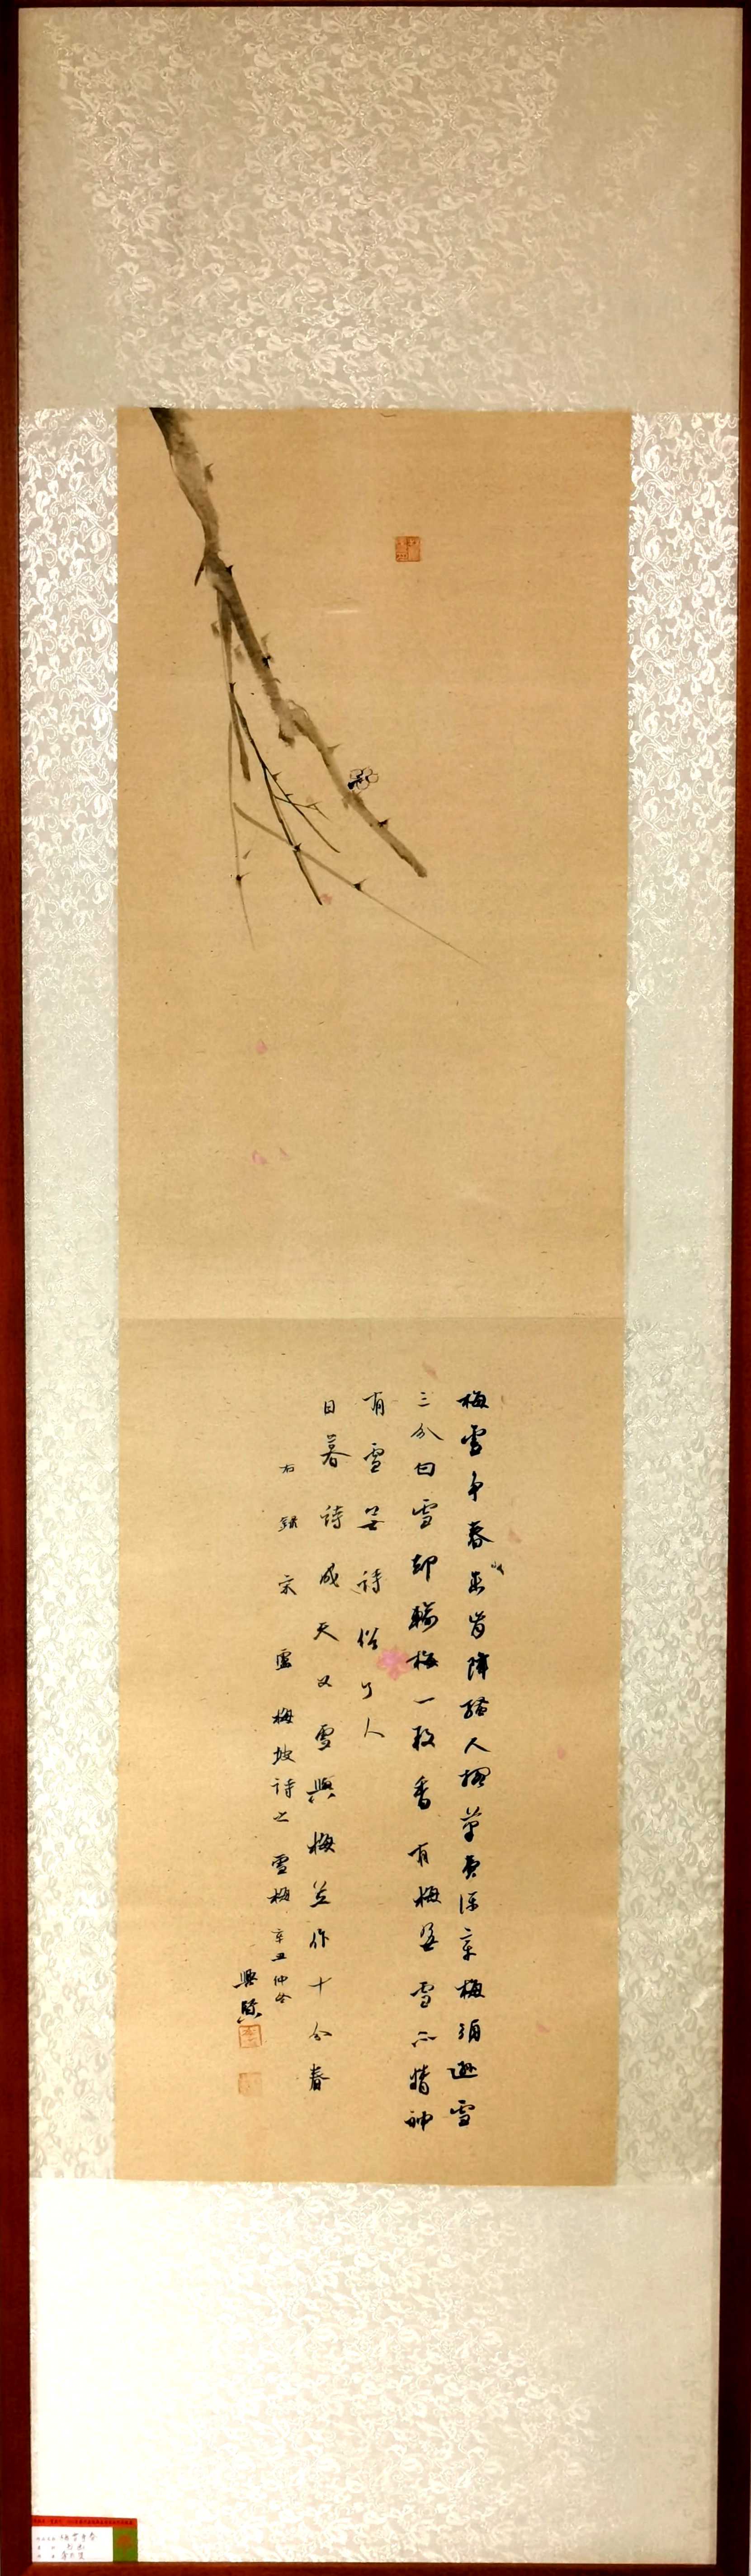 梅雪争春未肯降騷人擱筆費評章梅須遜雪
三分白雪却輸梅一段香有梅無雪不精神
有雪無詩俗了人
日暮詩成天又雪與梅並作十分春
右録宋盧梅坡詩之雪梅 辛丑仲冬
梅雪争春